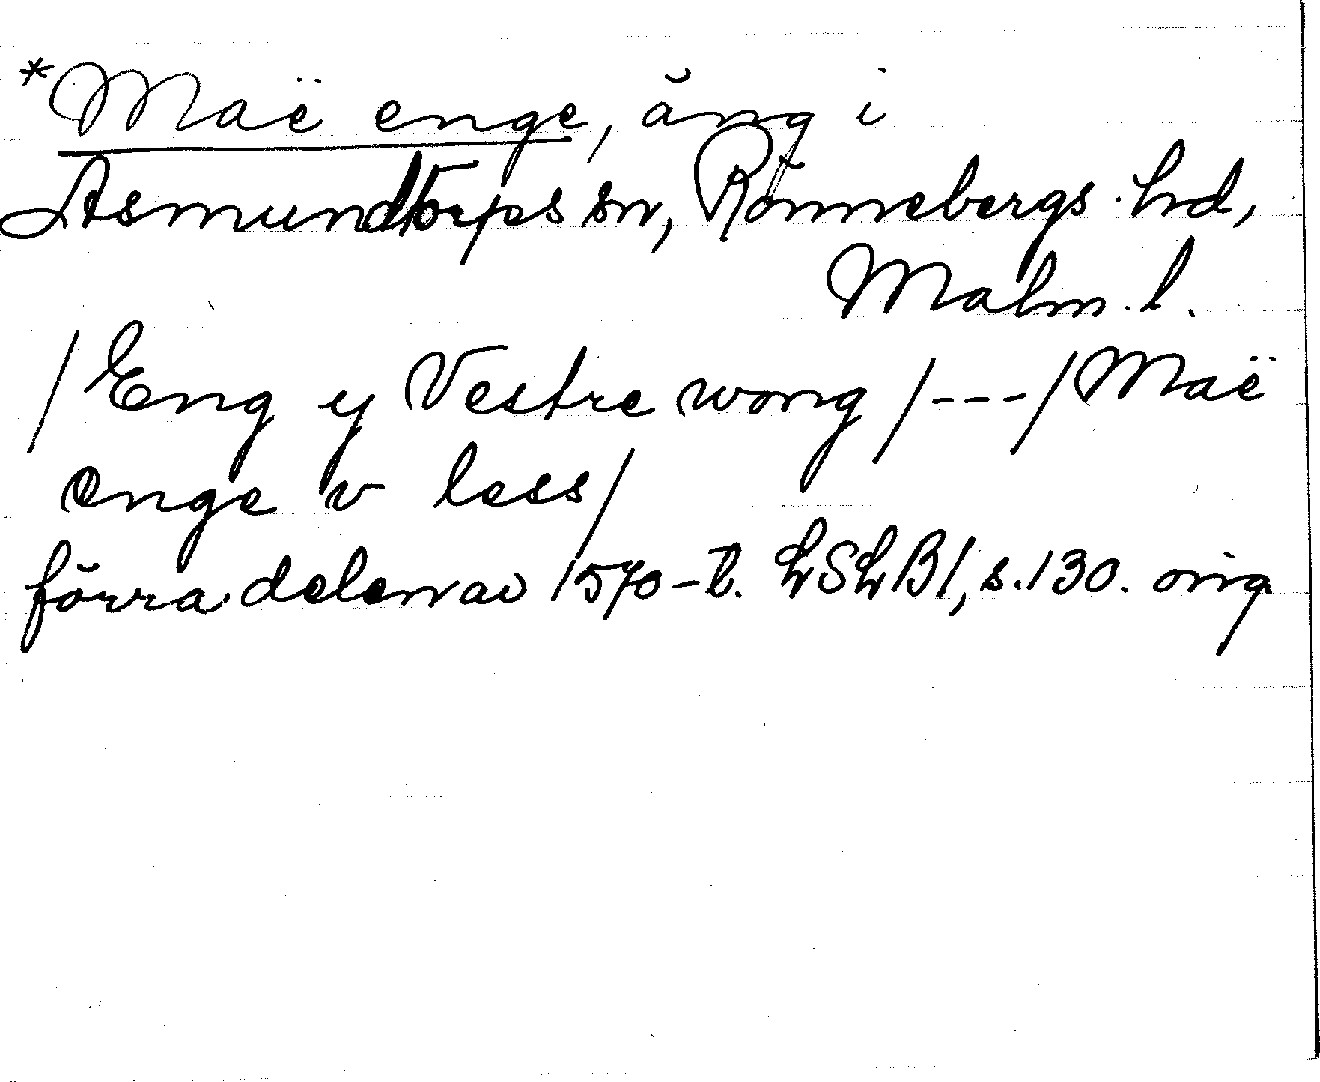 *Maë enge, äng i
Asmundtorps sn, Rönnebergs hd,
Malm. l.
/Eng y Vestre wong/---/Maë
enge v less/
förra delen av 1570-t. LSLB1, s.130. orig